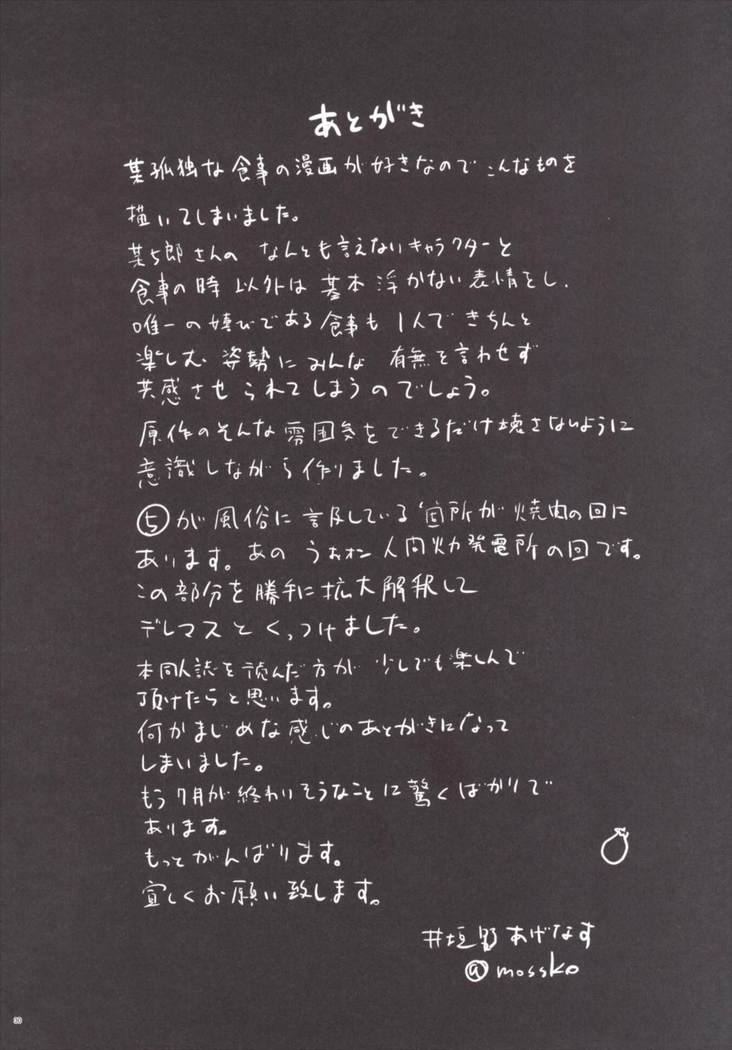 あとがき
某孤独な食事の漫画が好きなのでこんなものを
描いてしまいました。
某五郎さんの なんとも言えないキャラクターと
食事の時以外は基本浮かない表情をし、
唯一の喜びである食事も1人できちんと
楽しむ姿勢にみんな 有無を言わせず
共感させられてしまうのでしょう。
原作のそんな雰囲気をできるだけ壊さないように
意識しながら作りました。
⑤が風俗に言及している箇所が焼肉の回に
あります。あのうぉォン人間火力発電所の回です。
この部分を勝手に拡大解釈して
デレマスとくっつけました。
本同人誌を読んだ方が 少しでも楽しんで
頂けたらと思います。
何かまじめな感じのあとがきになって
しまいました。
もう7月が終わりそうなことに驚くばかりで
あります。
もっとがんばります。
宜しくお願い致します。
井垣野あげなす
@mossko
30